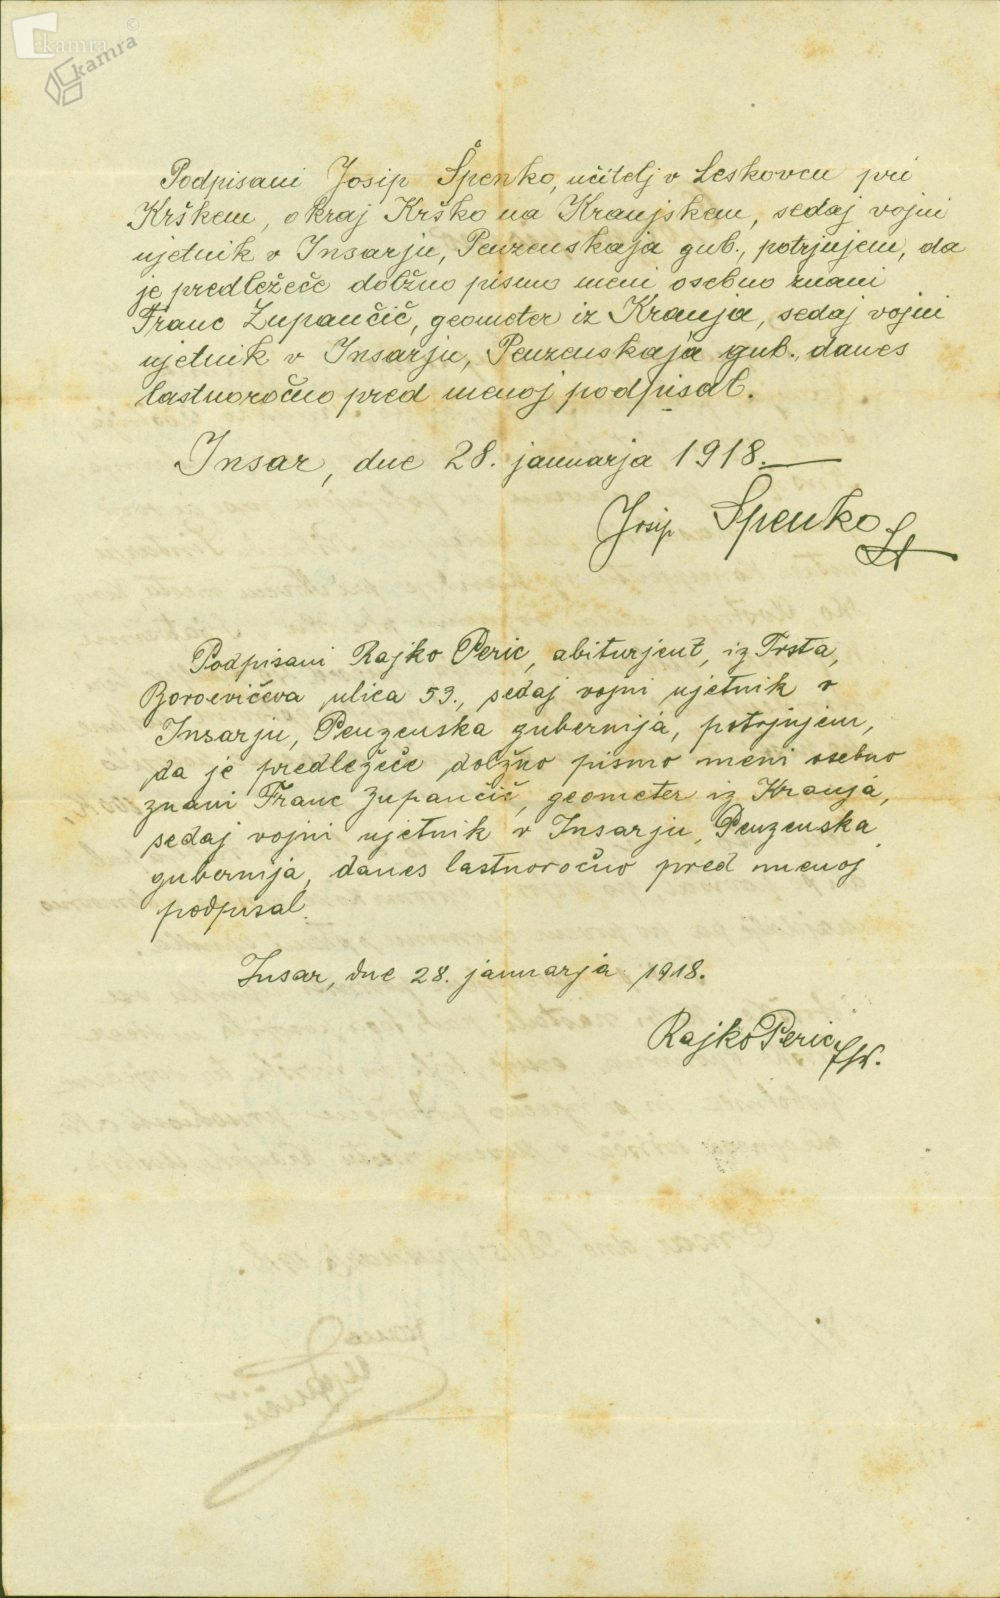 kamra
kamra
Podpisani Josip Špenko, učitelj v Leskovcu pri
Krškem, okraj Krško na Kranjskem, sedaj vojni
ujetnik v Insarju, Penzenskaja gub., potrjujem, da
je predležeče dolžno pismo meni osebno znani
Franc Zupančič, geometer iz Kranja, sedaj vojni
ujetnik v Insarju, Penzenskaja gub., danes
lastnoročno pred menoj podpisal.
Insar, dne 28. januarja 1918.
Josip Špenko
Podpisani Rajko Peric, abiturjent, iz Trsta,
Boroevičeva ulica 53., sedaj vojni ujetnik v
Insarju, Penzenska gubernija, potrjujem,
da je predležeče dolžno pismo meni osebno
znani Franc Zupančič, geometer iz Kranja,
sedaj vojni ujetnik v Insarju, Penzenska
gubernija, danes lastnoročno pred menoj
podpisal.
Insar, dne 28. januarja 1918.
Rajko Peric